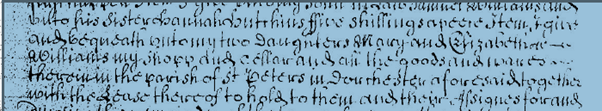 unto his sister hannah hutchins ffive shillings apeece Item I give
and bequeath unto my two Daughters Mary and Elizabeth
Williams my shopp and Cellar and all the goods and wares
therein in the parish of St Peters in Dorchester aforesaid together
with the Lease thereof to hold to them and their Assignes for and